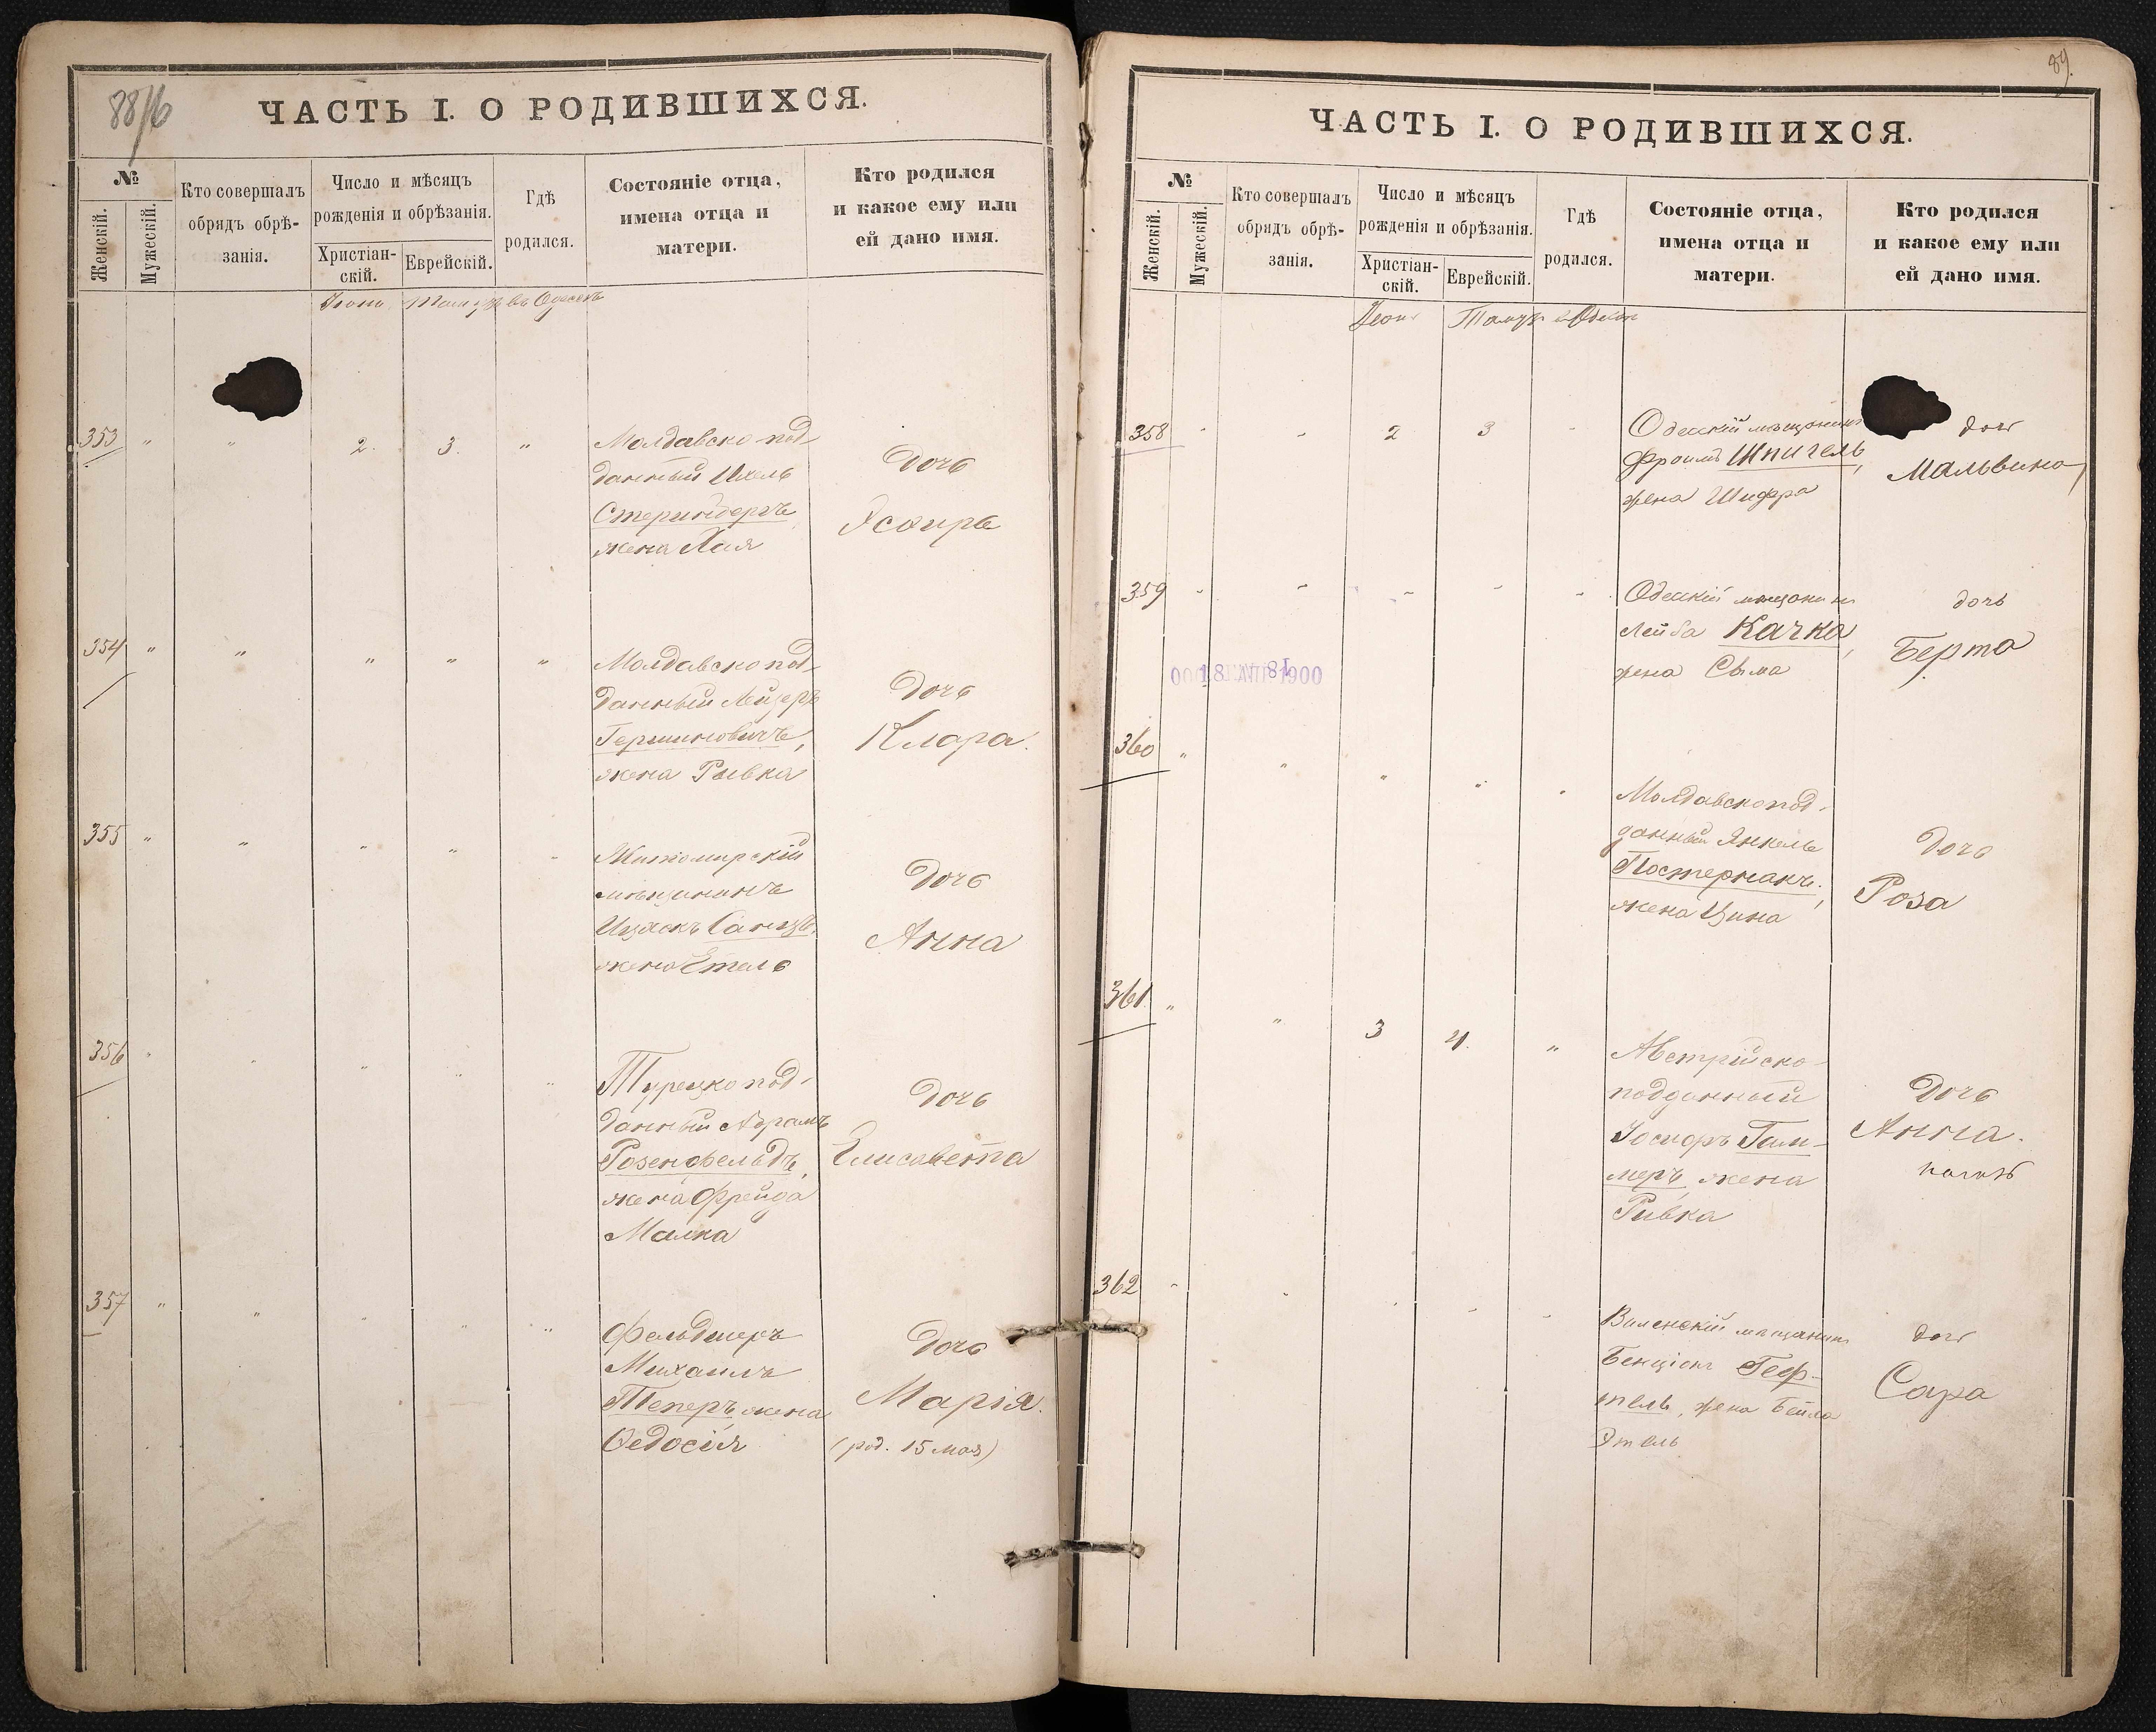 88/76
ЧАСТЬ I. О РОДИВШИХСЯ.
№
Женскій.
Мужескій.
Кто совершалъ
обрядъ обрѣ-
занія.
Число и мѣсяцъ
рожденія и обрѣзанія.
Христіан-
скій.
Еврейскій.
Гдѣ
родился.
Состояніе отца,
имена отца и
матери.
Кто родился
и какое ему или
ей дано имя.
Іюнь Тамузъ въ Одессѣ
353 " " 2. 3. "
Молдавско-под-
данный Ихель
жена Хая
Дочь
354 " " " " "
Молдавско под-
данный Лейзеръ
Гершиновичъ,
жена Рывка
Дочь
Клара.
355 " " " " "
Житомирскій
мѣщанинъ
Ицхокъ
жена Етель
Дочь
Анна
356 " " " " "
Турецко под-
данный Абрамъ
Розенфельдъ,
жена Фрейда
Малка
Дочь
Елисавета
357 " " " " "
Фельдшеръ
Михаилъ
Теперъ, жена
Федосія
Дочь
Марія.
(род. 15 мая)
89.
ЧАСТЬ I. О РОДИВШИХСЯ.
№
Женскій.
Мужескій.
Кто совершалъ
обрядъ обрѣ-
занія.
Число и мѣсяцъ
рожденія и обрѣзанія.
Христіан-
скій.
Еврейскій.
Гдѣ
родился.
Состояніе отца,
имена отца и
матери.
Кто родился
и какое ему или
ей дано имя.
Іюнь Тамузъ въ Одессѣ
358 " " 2 3 "
Одесскій мѣщанинъ
Фроимъ Шпигель,
жена Шифра
дочь
Мальвина
359 " " " " "
Одесскій мѣщанинъ
Лейба Качка,
жена Сыма
дочь
Берта
360 " " " " "
Молдавско под-
данный Янкель
Постернакъ,
жена Цина
Дочь
Роза
361. " " 3 4. "
Австрійско-
подданный
Іосифъ Гам-
меръ, жена
Ривка
Дочь
Анна.
362 " " " " "
Виленскій мѣщанинъ
Бенціонъ Геф-
тель, жена Бейла
Этель
дочь
Сара